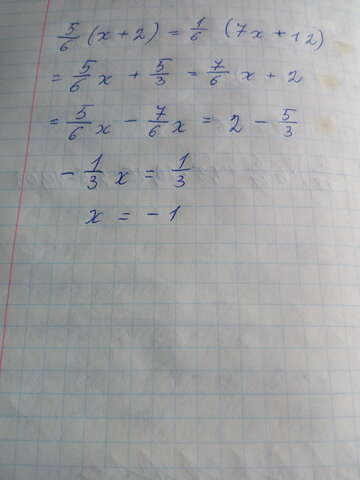 5/6 (x + 2) = 1/6 (7x + 12)
= 5/6 x + 5/3 = 7/6 x + 2
= 5/6 x - 7/6 x = 2 - 5/3
- 1/3 x = 1/3
x = - 1